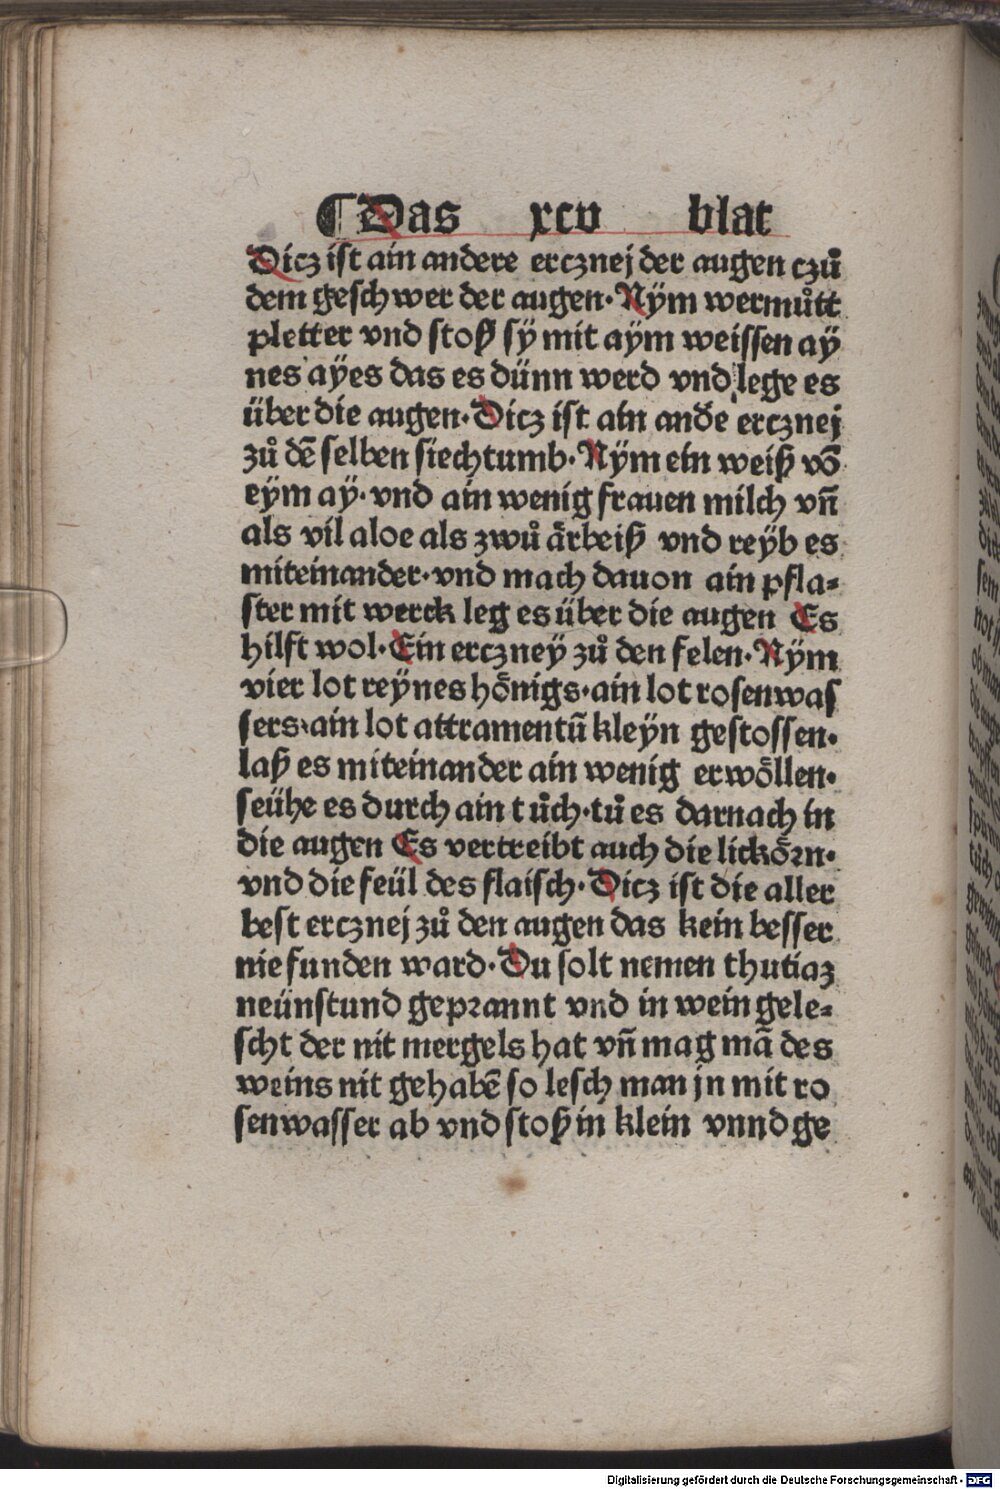 ¶ Das xcv blat
Dicz ist ain andere ercznej der augen czů
dem geschwer der augen· Nÿm wermůtt
pletter vnd stoß sÿ mit aÿm weissen aÿ
nes aÿes das es dünn werd vnd lege es
über die augen· Dicz ist ain and̃e ercznej
zů dẽ selben siechtumb· Nÿm ein weiß võ
eÿm aÿ· vnd ain wenig frauen milch vñ
als vil aloe als zwů ärbeiß vnd reÿb es
miteinander· vnd mach dauon ain pfla⸗
ster mit werck leg es über die augen Es
hilft wol· Ein erczneÿ zů den felen· Nÿm
vier lot reÿnes hönigs· ain lot rosenwas
sers· ain lot attramentũ kleÿn gestossen·
laß es miteinander ain wenig erwöllen·
seühe es durch ain tůch· tů es darnach in
die augen Es vertreibt auch die lickörn·
vnd die feül des flaisch· Dicz ist die aller
best ercznej zů den augen das kein besser
nie funden ward· Du solt nemen thutiaz
neünstund geprannt vnd in wein gele⸗
scht der nit mergels hat vñ mag mã des
weins nit gehabẽ so lesch man jn mit ro
senwasser ab vnd stoß in klein vnnd ge
Digitalisierung gefördert durch die Deutsche Forschungsgemeinschaft - DFG